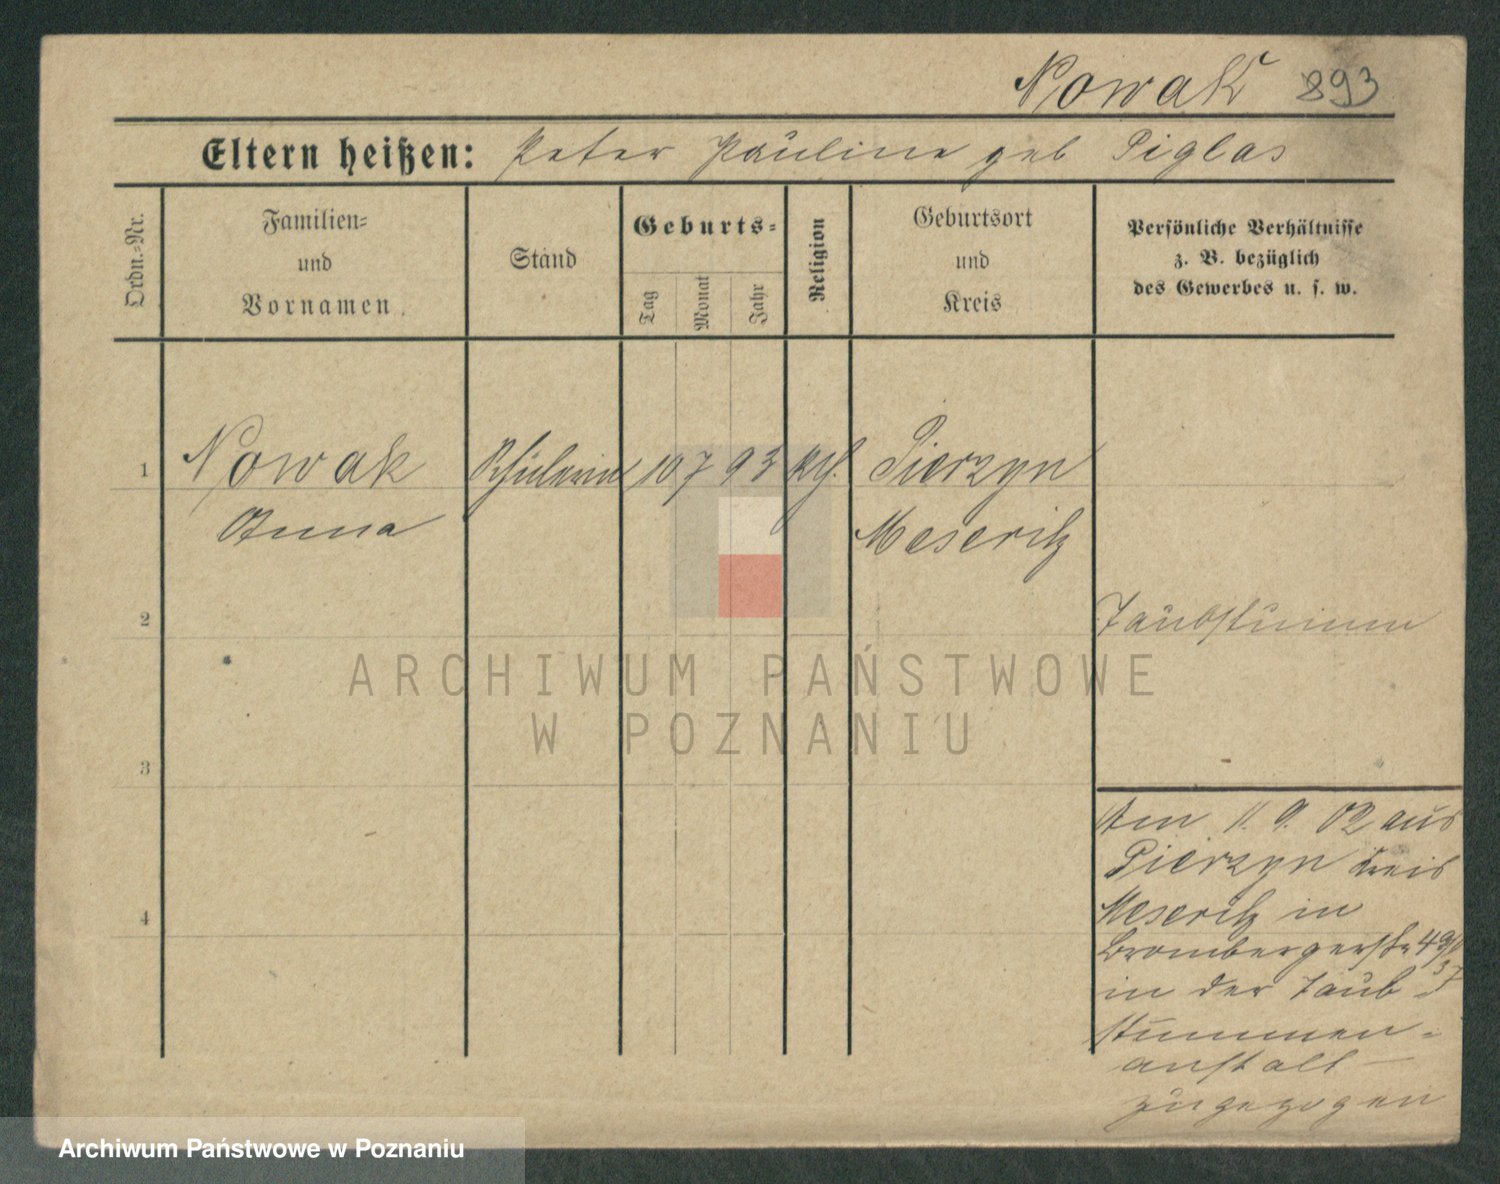 Nowak 893
Eltern heißen: Peter Pauline geb Piglas
Ordn.-Nr.
Familien-
und
Vornamen.
Stand
Geburts-
Tag
Monat
Jahr
Religion
Geburtsort
und
Kreis
Persönliche Verhältnisse
z. B. bezüglich
des Gewerbes u. s. w.
1 Nowak Schülerin 10 7 93 kth. Pierzyn
Anna Meseritz
2 Taubstumm
3
Am 11. 9. 02 aus
Pierzyn Kreis
Meseritz in
4
Brombergerstr
in der Taub-
stummen-
anstalt
zugezogen
ARCHIWUM PAŃSTWOWE
W POZNANIU
Archiwum Państwowe w Poznaniu